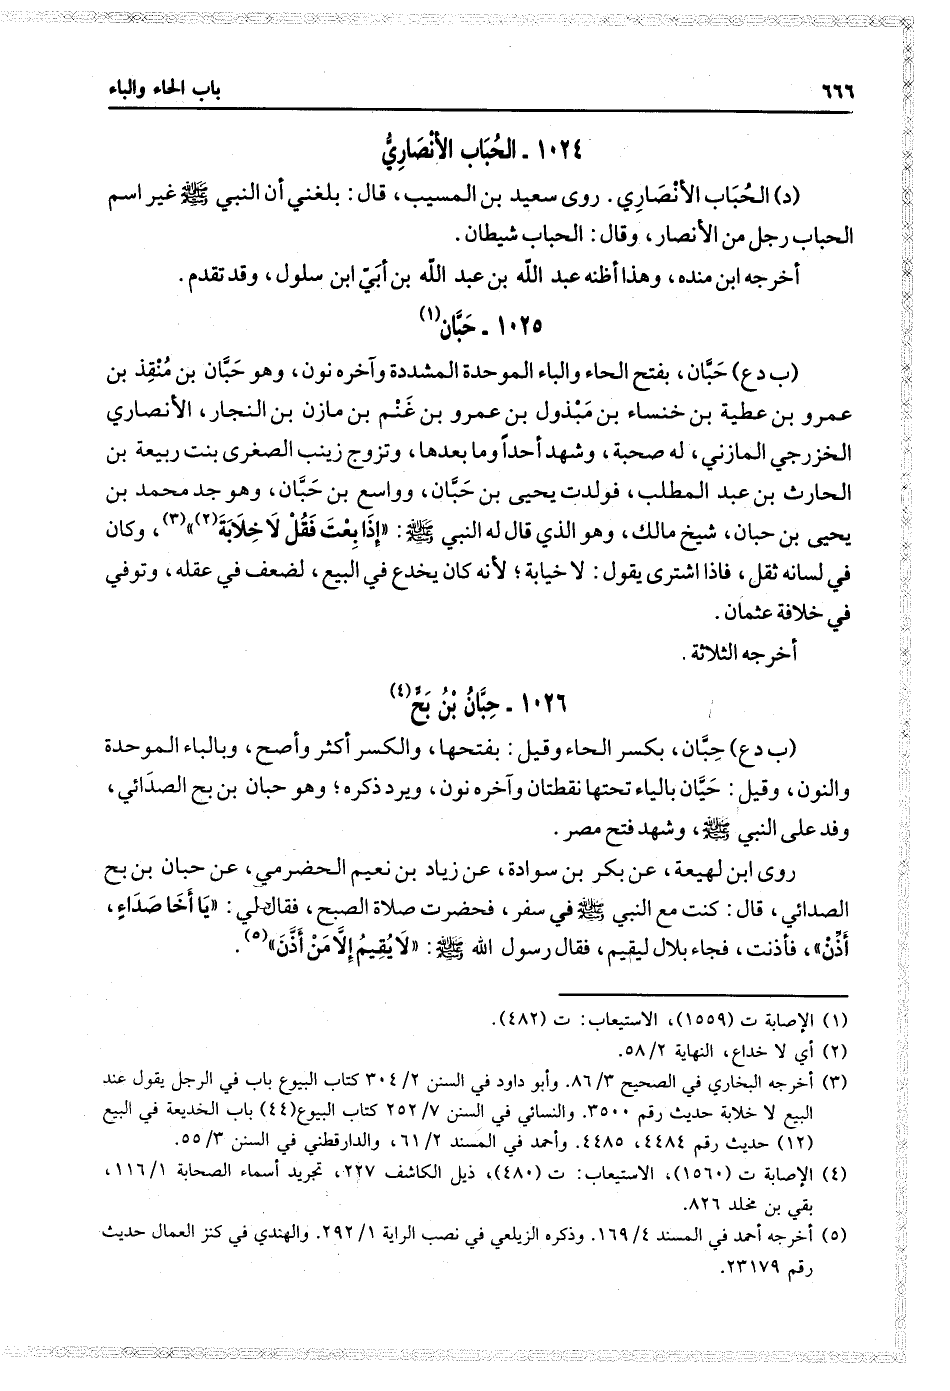 ٦٦٦
باب الحاء والباء
١٠٢٤ - الحُبَاب الأنْصَارِيُّ
(د) الحُبَاب الأنْصَارِي. روى سعيد بن المسيب، قال: بلغني أن النبي ﷺ غير اسم
الحباب رجل من الأنصار، وقال: الحباب شيطان.
أخرجه ابن منده، وهذا أظنه عبد اللّه بن عبد اللّه بن أُبَيّ ابن سلول، وقد تقدم.
١٠٢٥ - حَبَّان(١)
(ب د ع) حَبَّان، بفتح الحاء والباء الموحدة المشددة وآخره نون، وهو حَبَّان بن مُنْقِذ بن
عمرو بن عطية بن خنساء بن مَبْذول بن عمرو بن غَنْم بن مازن بن النجار، الأنصاري
الخزرجي المازني، له صحبة، وشهد أحداً وما بعدها، وتزوج زينب الصغرى بنت ربيعة بن
الحارث بن عبد المطلب، فولدت يحيى بن حَبَّان، وواسع بن حَبَّان، وهو جد محمد بن
يحيى بن حبان، شيخ مالك، وهو الذي قال له النبي ﷺ: «إِذَا بِعْتَ فَقُلْ لَا خِلَابَةَ(٢)»(٣)، وكان
في لسانه ثقل، فاذا اشترى يقول: لا خيابة؛ لأنه كان يخدع في البيع، لضعف في عقله، وتوفي
في خلافة عثمان.
أخرجه الثلاثة.
١٠٢٦ - حِبَّانُ بْنُ بَحّ(٤)
(ب د ع) حِبَّان، بكسر الحاء وقيل: بفتحها، والكسر أكثر وأصح، وبالباء الموحدة
والنون، وقيل: حَيَّان بالياء تحتها نقطتان وآخره نون، ويرد ذكره؛ وهو حبان بن بح الصدَائي،
وفد على النبي ﷺ، وشهد فتح مصر.
روى ابن لهيعة، عن بكر بن سوادة، عن زياد بن نعيم الحضرمي، عن حبان بن بح
الصدائي، قال: كنت مع النبي ﷺ في سفر، فحضرت صلاة الصبح، فقال لي: «يَا أَخَا صَدَاءٍ،
أَذِّنْ»، فأذنت، فجاء بلال ليقيم، فقال رسول الله ﷺ: «لَا يُقِيمُ إِلَّا مَنْ أَذَّنَ»(٥).
(١) الإصابة ت (١٥٥٩)، الاستيعاب: ت (٤٨٢).
(٢) أي لا خداع، النهاية ٥٨/٢.
(٣) أخرجه البخاري في الصحيح ٨٦/٣. وأبو داود في السنن ٣٠٤/٢ كتاب البيوع باب في الرجل يقول عند
البيع لا خلابة حديث رقم ٣٥٠٠. والنسائي في السنن ٢٥٢/٧ كتاب البيوع(٤٤) باب الخديعة في البيع
(١٢) حديث رقم ٤٤٨٤، ٤٤٨٥. وأحمد في المسند ٦١/٢، والدارقطني في السنن ٥٥/٣.
(٤) الإصابة ت (١٥٦٠)، الاستيعاب: ت (٤٨٠)، ذيل الكاشف ٢٢٧، تجريد أسماء الصحابة ١١٦/١،
بقي بن مخلد ٨٢٦.
(٥) أخرجه أحمد في المسند ١٦٩/٤. وذكره الزيلعي في نصب الراية ٢٩٢/١. والهندي في كنز العمال حديث
رقم ٢٣١٧٩.